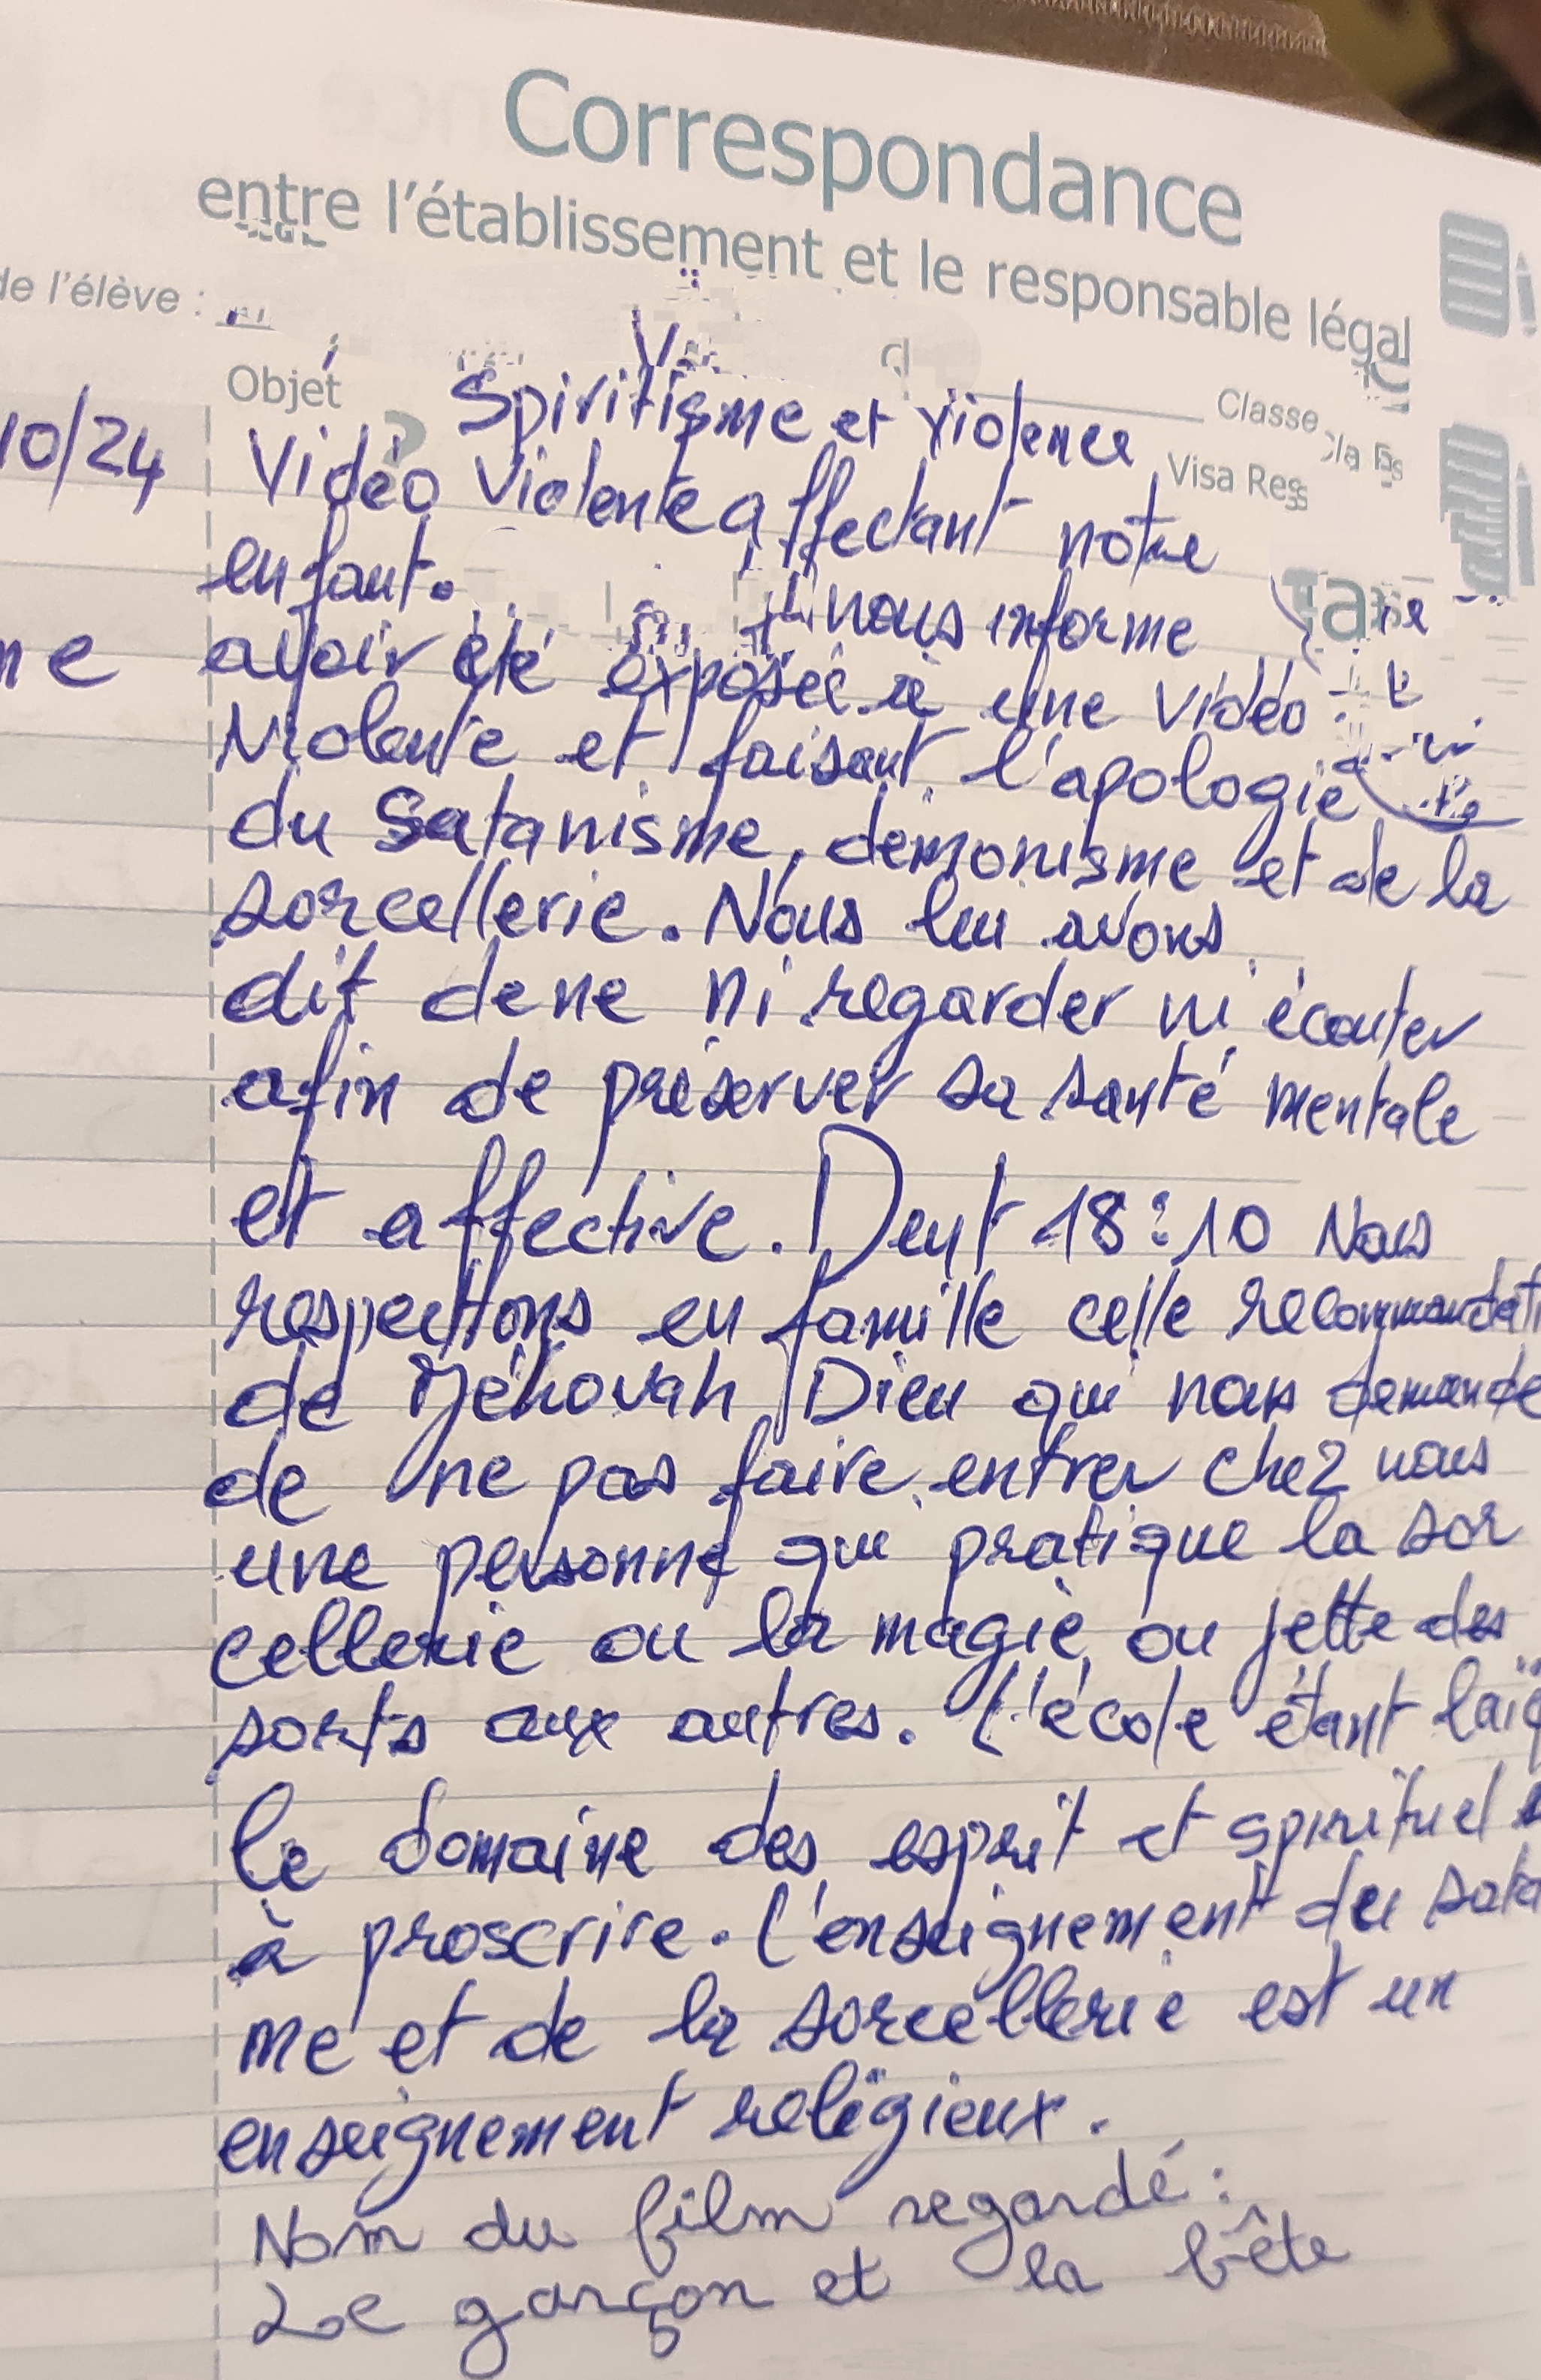 Correspondance
entre l'établissement et le responsable légal
de l'élève :
Classe
Objet
Visa Res
10/24
Spiritisme et violence
Vidéo violente affectant notre
enfant.
nous informe
ne
avoir été exposée à une vidéo
violente et faisant l'apologie
du Satanisme, démonisme et de la
sorcellerie. Nous lui avons
dit de ne ni regarder ni écouter
afin de préserver sa santé mentale
et affective. Deut 18:10 Nous
respectons en famille celle recommandati
de Jéhovah Dieu qui nous demande
de ne pas faire entrer chez nous
une personne qui pratique la sor
cellerie ou la magie ou jette des
sorts aux autres. L'école étant laïq
le domaine des esprit et spirituel
à proscrire. L'enseignement du sata
me et de la sorcellerie est un
enseignement religieux.
Nom du film regardé :
Le garçon et la bête